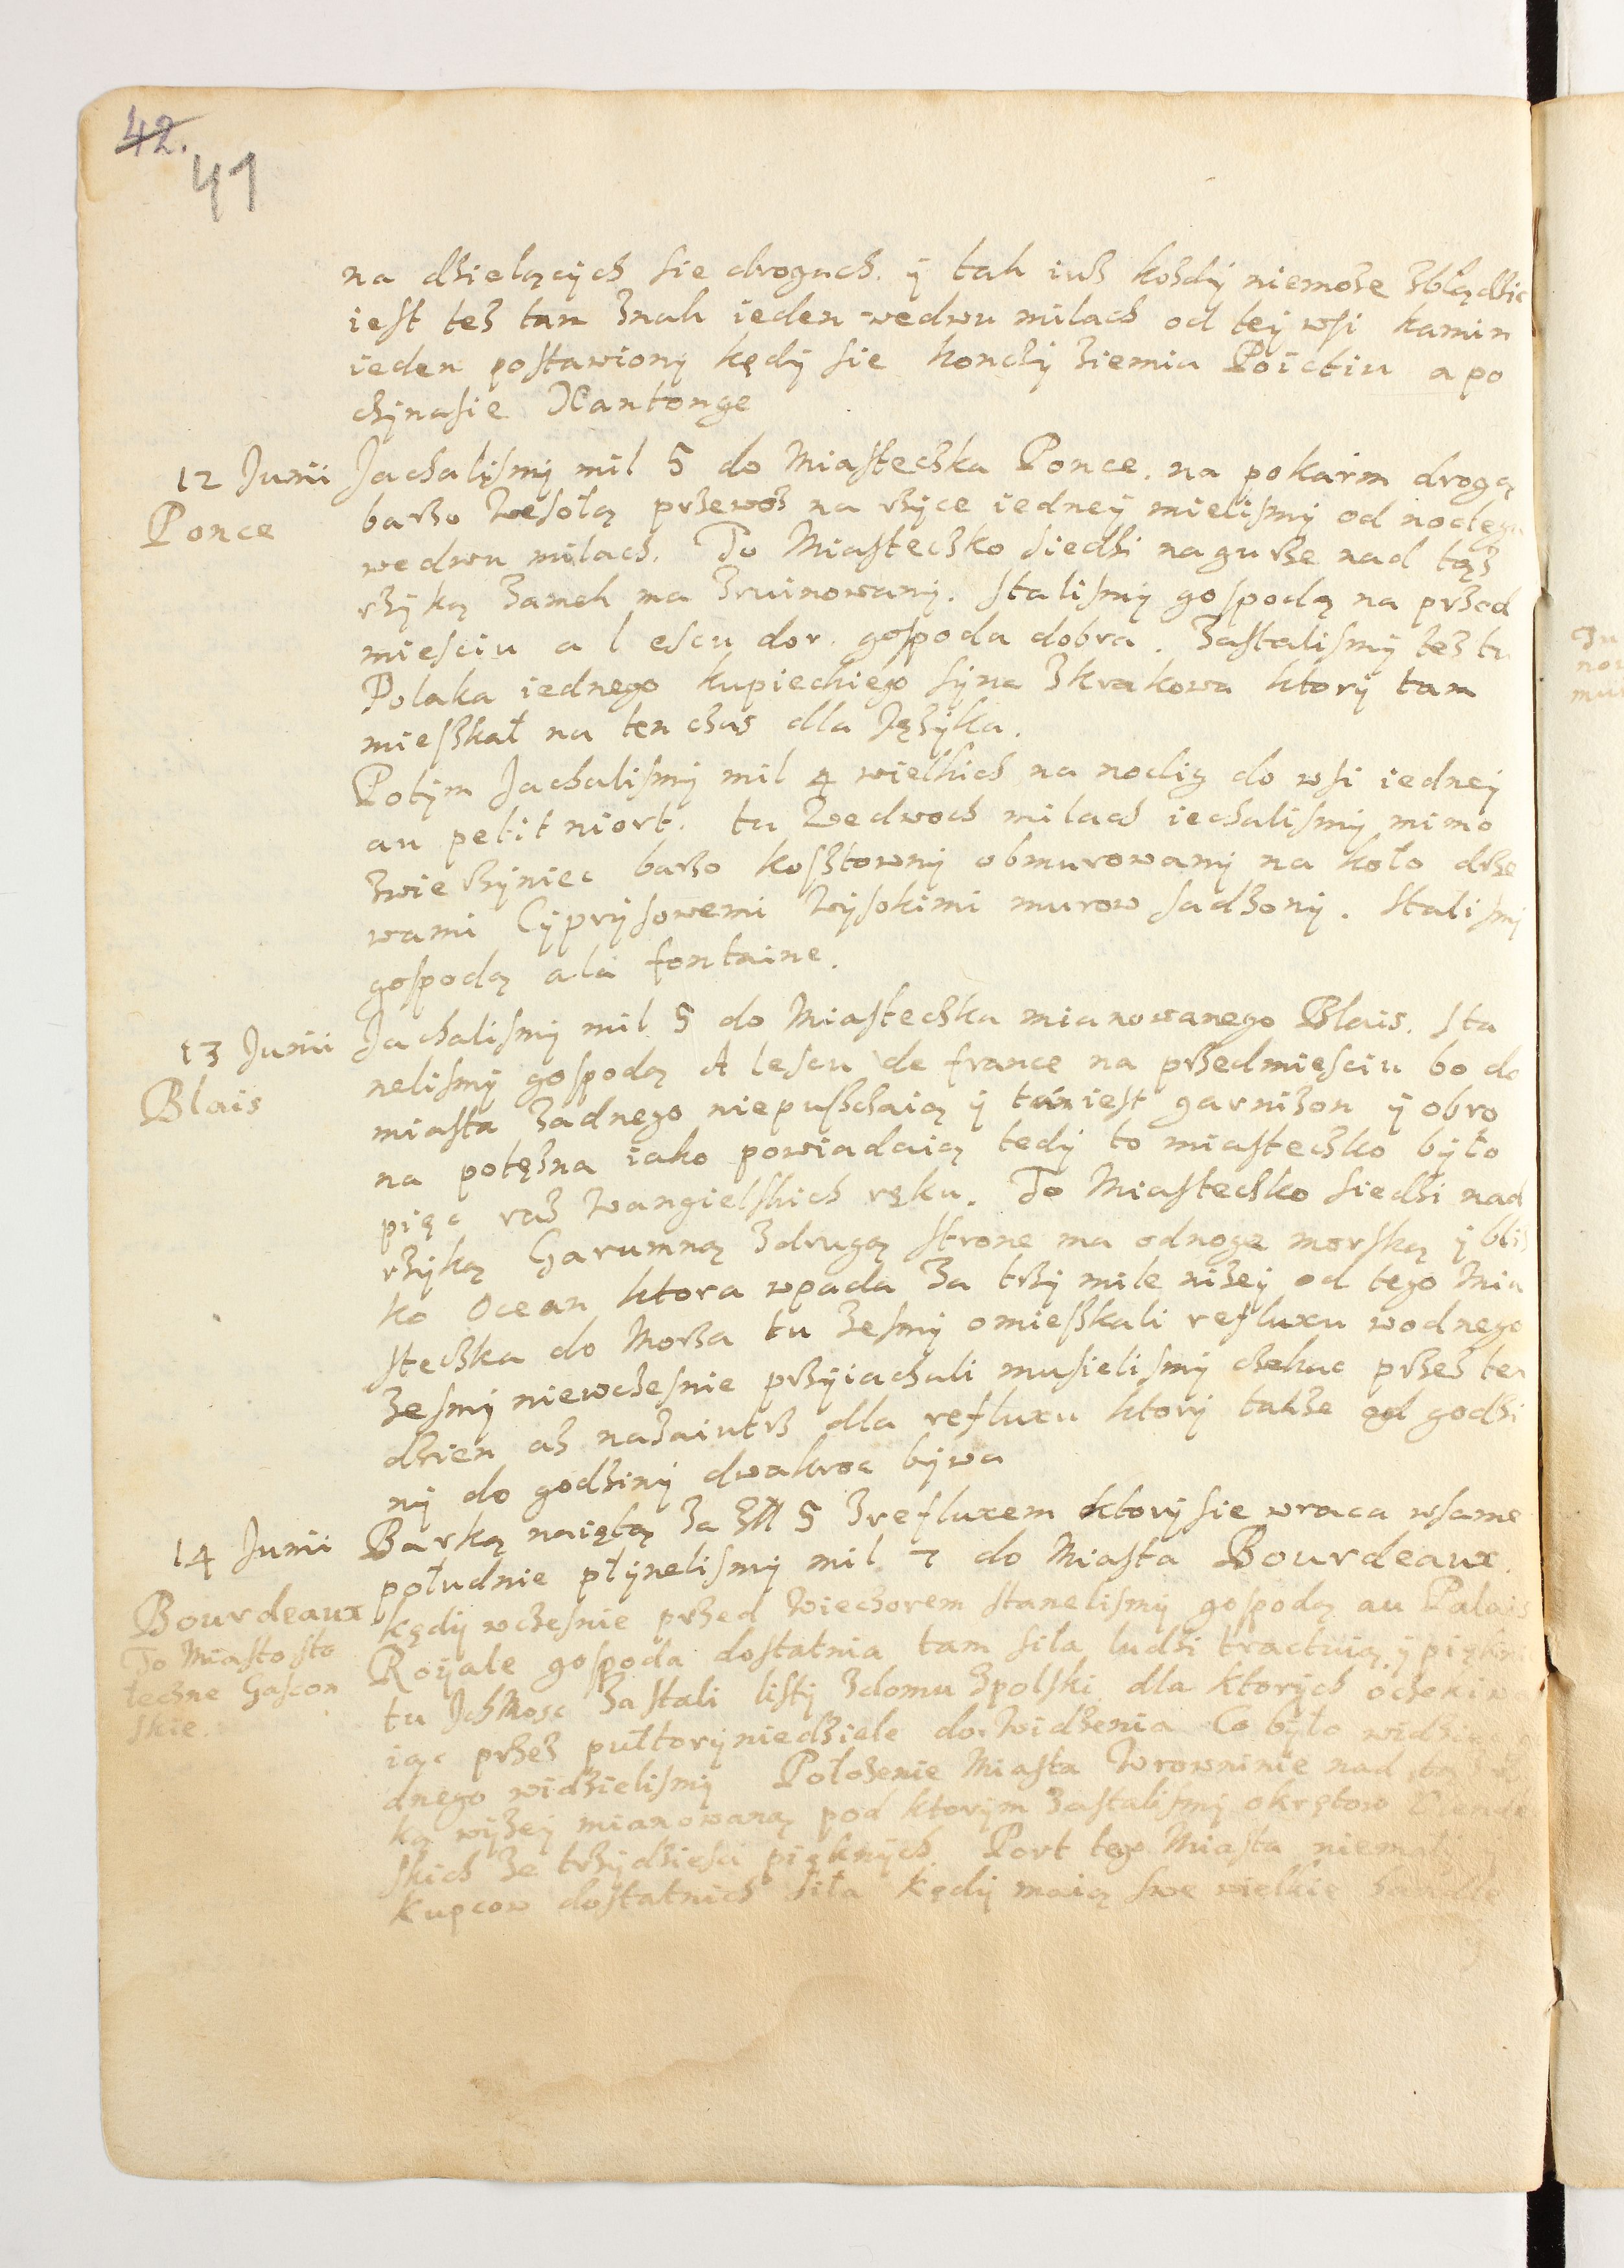 42.
41
na dzielących sie drogach. ÿ tak iuz kozdÿ niemoze zbłądzic
iest tez tam znak ieden wedwu milach od teÿ wsi kamin
ieden postawionÿ kędÿ sie konczÿ ziemia Poictiu a po
czÿnasie Xantonge
12 Junii
Jachalismÿ mil 5 do Miasteczka Ponce. na pokarm drogą
Ponce
barzo wesołą przewoz na rzyce iedneÿ mielismÿ od noclegu
wedwu milach. To Miasteczko siedzi na gurze nad tąz
rzÿką zamek ma zruinowanÿ. Stalismÿ gospodą na przed
miesciu a l escu dor. gospoda dobra. Zastalismÿ tez tu
Polaka iednego kupieckiego sÿna zkrakowa ktorÿ tam
mieszkał na ten czas dla Jęzÿka.
Potÿm Jachalismÿ mil 4 wielkich na noclig do wsi iedneÿ
au petit niort. tu wedwoch milach iechalismÿ mimo
zwierzÿniec barzo kosztownÿ obmurowanÿ na koło drze
wami Cÿprÿsowemi wÿsokimi murow sadzonÿ. Stalismÿ
gospodą ala fontaine.
13 Junii
Jachalismÿ mil 5 do Miasteczka mianowanego Blais. Sta
Blais
nelismÿ gospodą A lescu de france na przedmiesciu bo do
miasta zadnego niepuszczaią ÿ tam iest garnizon ÿ obro
na potęzna iako powiadaią tedÿ to miasteczko bÿło
pięc raz wangielskich ręku. To Miasteczko siedzi nad
rzÿką Garumną zdrugą strone ma odnoge morską ÿ blis
ko Ocean ktora wpada za trzÿ mile nizeÿ od tego Mia
steczka do Morza tu zesmÿ omieszkali refluxu wodnego
zesmÿ niewczesnie przÿiachali musielismÿ czekac przez ten
dzien az nazaiutrz dla refluxu ktorÿ takze od godzi
nÿ do godzinÿ dwakroc bÿwa
14 Junii
Barką naiętą za 5 zrefluxem ktorÿ sie wraca wsame
południe płÿnelismÿ mil 7 do Miasta Bourdeaux.
Bourdeaux
To Miasto sto
łeczne Gascon
skie.
kędÿ wczesnie przed wieczorem stanelismÿ gospodą au Palais
Roÿale gospoda dostatnia tam siła ludzi tractuią ÿ pięknie
tu IchMosc zastali listÿ zdomu zpolski dla ktorÿch oczekiwa
iąc przez pułtorÿ niedziele do widzenia Co bÿło
dnego widzielismÿ Połozenie Miasta wrowninie nad
ką wÿzeÿ mianowaną pod ktorÿm zastalismÿ okrętow
skich ze trzÿdziesci pięknÿch. Port tego Miasta niemałÿ
kupcow dostatnich siła kędÿ maią swe wielkie handle